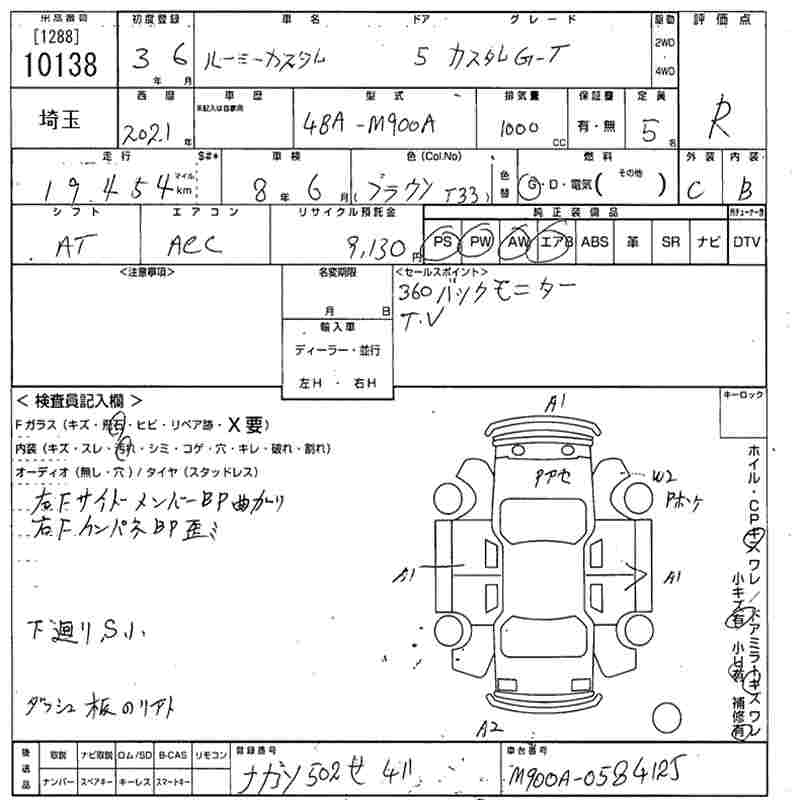 出品番号 初度登録 車名 ドア グレード 駆動 評価点
[1288]
10138 3年 6月 ルーミーカスタム 5 カスタムG-T 2WD・4WD R
埼玉 西暦 車歴 型式 排気量 保証書 定員
2021年 未記入は自家用 4BA-M900A 1000cc 有・無 5名
走行 S#* 車検 色(Col.No) 色替 燃料 外装 内装
19,454 マイル km 8年 6月 (ブラウン T33) G・D・電気( その他 ) C B
シフト エアコン リサイクル預託金 純正装備品
AT AAC 9,130円 PS PW AW エアB ABS 革 SR ナビ DTV
<注意事項> 名変期限 <セールスポイント>
月 日 360バックモニター
輸入車 T.V
ディーラー・並行
左H・右H
キーロック
<検査員記入欄>
Fガラス(キズ・飛石・ヒビ・リペア跡・X要)
内装(キズ・スレ・汚れ・シミ・コゲ・穴・キレ・破れ・割れ)
オーディオ(無し・穴)/タイヤ(スタッドレス)
右Fサイドメンバー BP曲がり
右Fインパネ BP歪ミ
下廻りS小
ダッシュ板のリアト
A1
Pアセ
W2
Pボケ
A1
A1
A2
ホイル・CPキズワレ/ドアミラーキズワレ
小キズ有 小凹有 補修有
後送品 取説 ナビ取説 ロム/SD B-CAS リモコン 登録番号 車台番号
ナンバー スペアキー キーレス スマートキー ナガノ 502 せ 411 M900A-0584125